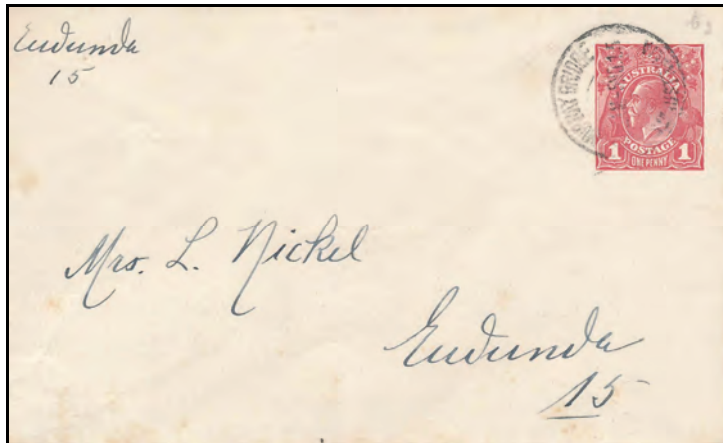 Eudunda
15
AUSTRALIA
POSTAGE
1 ONE PENNY 1
Mrs. L. Nickel
Eudunda
15